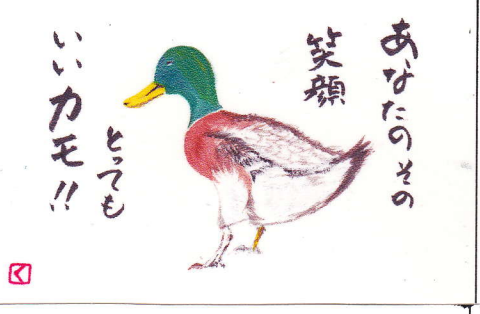 あなたのその
笑顔
とっても
いいカモ!!
く